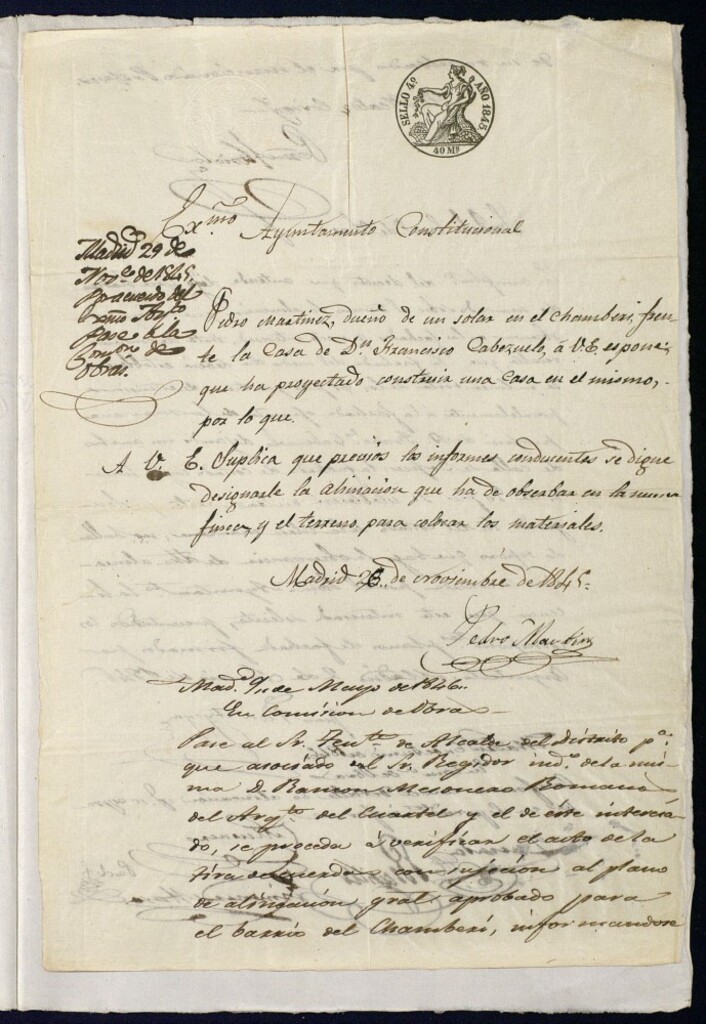 SELLO 4º AÑO 1845
40 Ms
Exmo Ayuntamiento Constitucional
Madrid 29 de
Nov.e de 1845.
Apacuerdo del
Exmo Ayto
Pase a la
Comon de
obras.
Pedro Martinez, dueño de un solar en el Chamberi, fren
te la Casa de Dn. Francisco Cabezuelo, á V.E. espone,
que ha proyectado construir una Casa en el mismo,
por lo que.
A V. E. Suplica que previos los informes conducentes se digne
designarle la alineacion que ha de observar en la nueva
finca, y el terreno para colocar los materiales.
Madrid 26 de noviembre de 1845.
Pedro Martinz
Mad.d 9,, de Mayo de 1846..
En Comision de Obras
Pase al Sr. Tente de Alcalde del Distrito pa.
que asociado al Sr. Regidor ind.o de la mis-
ma D. Ramon Mesonero Romanos
del Arqto del Cuartel y el de este interesa-
do, se proceda á verificar el acto de la
tira de cuerdas con sujecion al plano
de alineación gral aprobado para
el barrio del Chamberí, informandose